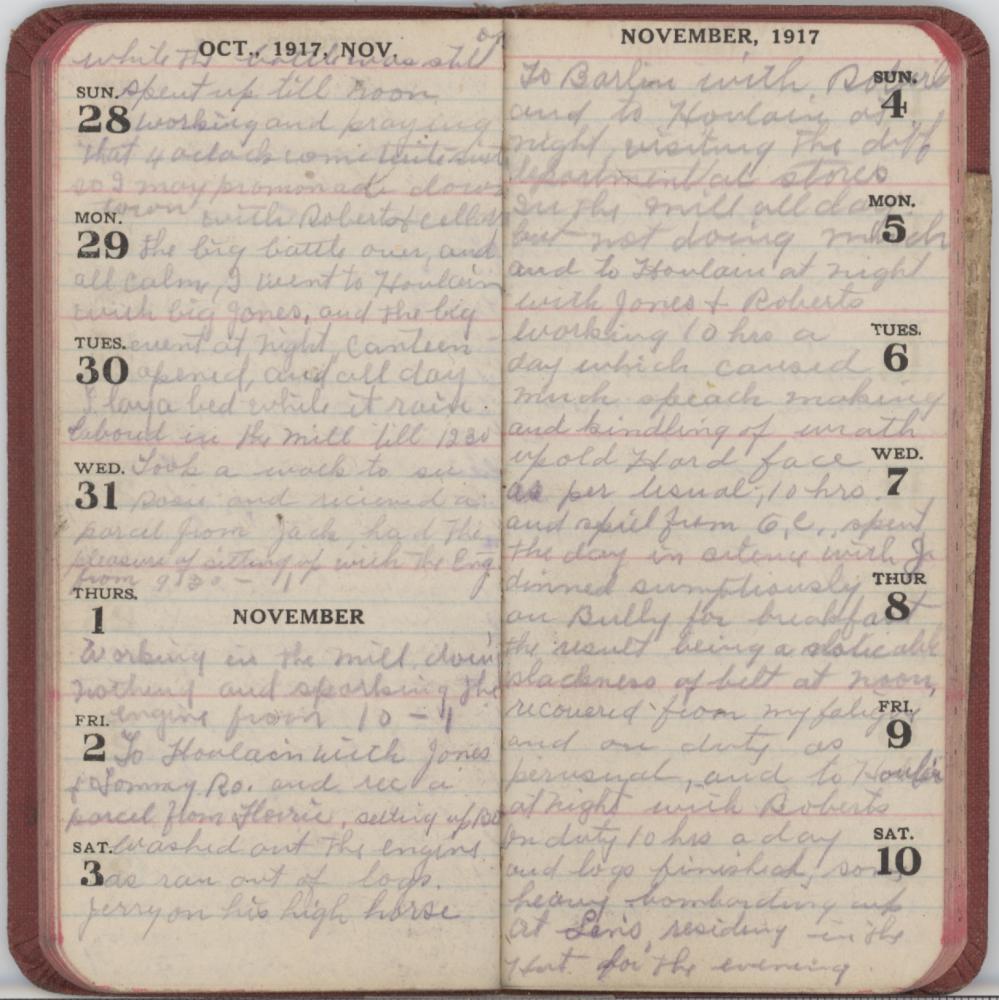 OCT., 1917, NOV.
while the battle was still on
SUN. spent up till noon
28 working and praying
that 4 oclock come
so I may promonade down
town with Roberts
MON.
29 the big battle over, and
all calm, I went to Houlain
with big Jones, and the big
TUES. event at night canteen
30 opened, and all day
I lay a bed while it rain
labourd in the mill till 1230
WED. Took a walk to see
31 Rosie and recieved a
parcel from Jack had the
pleasure of sitting up with the Eng
from 930 - 1
THURS.
1 NOVEMBER
Working in the mill doing
nothing and sparking the
engine from 10 - 4
FRI.
2 To Houlain with Jones
& Tommy Ro. and rec a
parcel from Florrie, setting up
SAT. Washed out the engine
3 as ran out of logs.
Jerry on his high horse
NOVEMBER, 1917
To Barlin with Roberts SUN.
and to Houlain at 4
night, visiting the diff
departmental stores
In the mill all day MON.
but not doing much 5
and to Houlain at night
with Jones & Roberts
working 10 hrs a TUES.
day which caused 6
much speach making
and kindling of wrath
upold Hard face WED.
as per usual, 10 hrs 7
and spiel from O.C., spent
the day in silence with
dinned sumptiously THUR
on Bully for breakfast 8
the result being a noticable
slackness of belt at noon,
recovered from my fatigue FRI.
and on duty as 9
perusual, and to Houlain
at night with Roberts
On duty 10 hrs a day SAT.
and logs finished, some 10
heavy bombarding up
at Lens, residing in the
Hut for the evening.